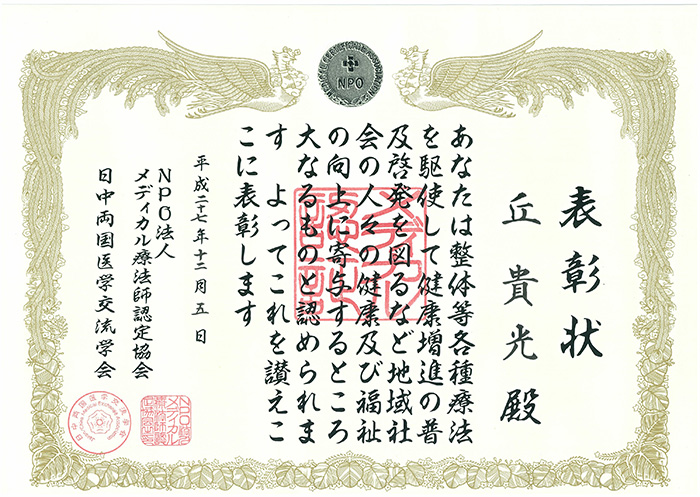 NPO
表彰状
丘貴光殿
あなたは整体等各種療法
を駆使して健康増進の普
及啓発を図るなど地域社
会の人々の健康及び福祉
の向上に寄与するところ
大なるものと認められま
す よってこれを讃えこ
こに表彰します
平成二十七年十二月五日
NPO法人
メディカル療法師認定協会
日中両国医学交流学会